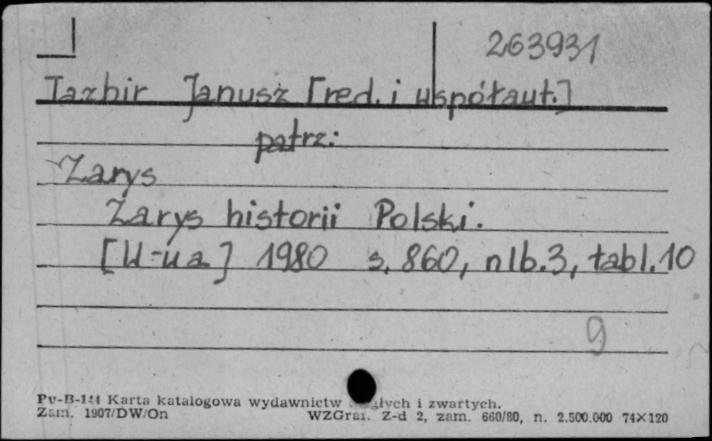 263931
Tazbir Janusz [red. i współaut.]
patrz:
Zarys
Zarys historii Polski.
[W-wa] 1980 s. 860, nlb. 3, tabl. 10
9
Pu-B-141 Karta katalogowa wydawnictw i zwartych.
Zam. 1907/DW/On WZGraf. Z-d 2, zam. 660/80, n. 2.500.000 74×120